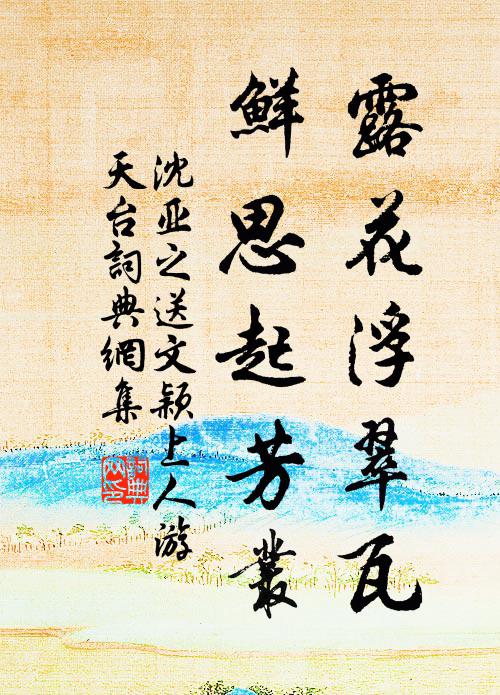 露花浮翠瓦
鮮思起芳叢
沈亚之送文颖上人游
天台詞典網集